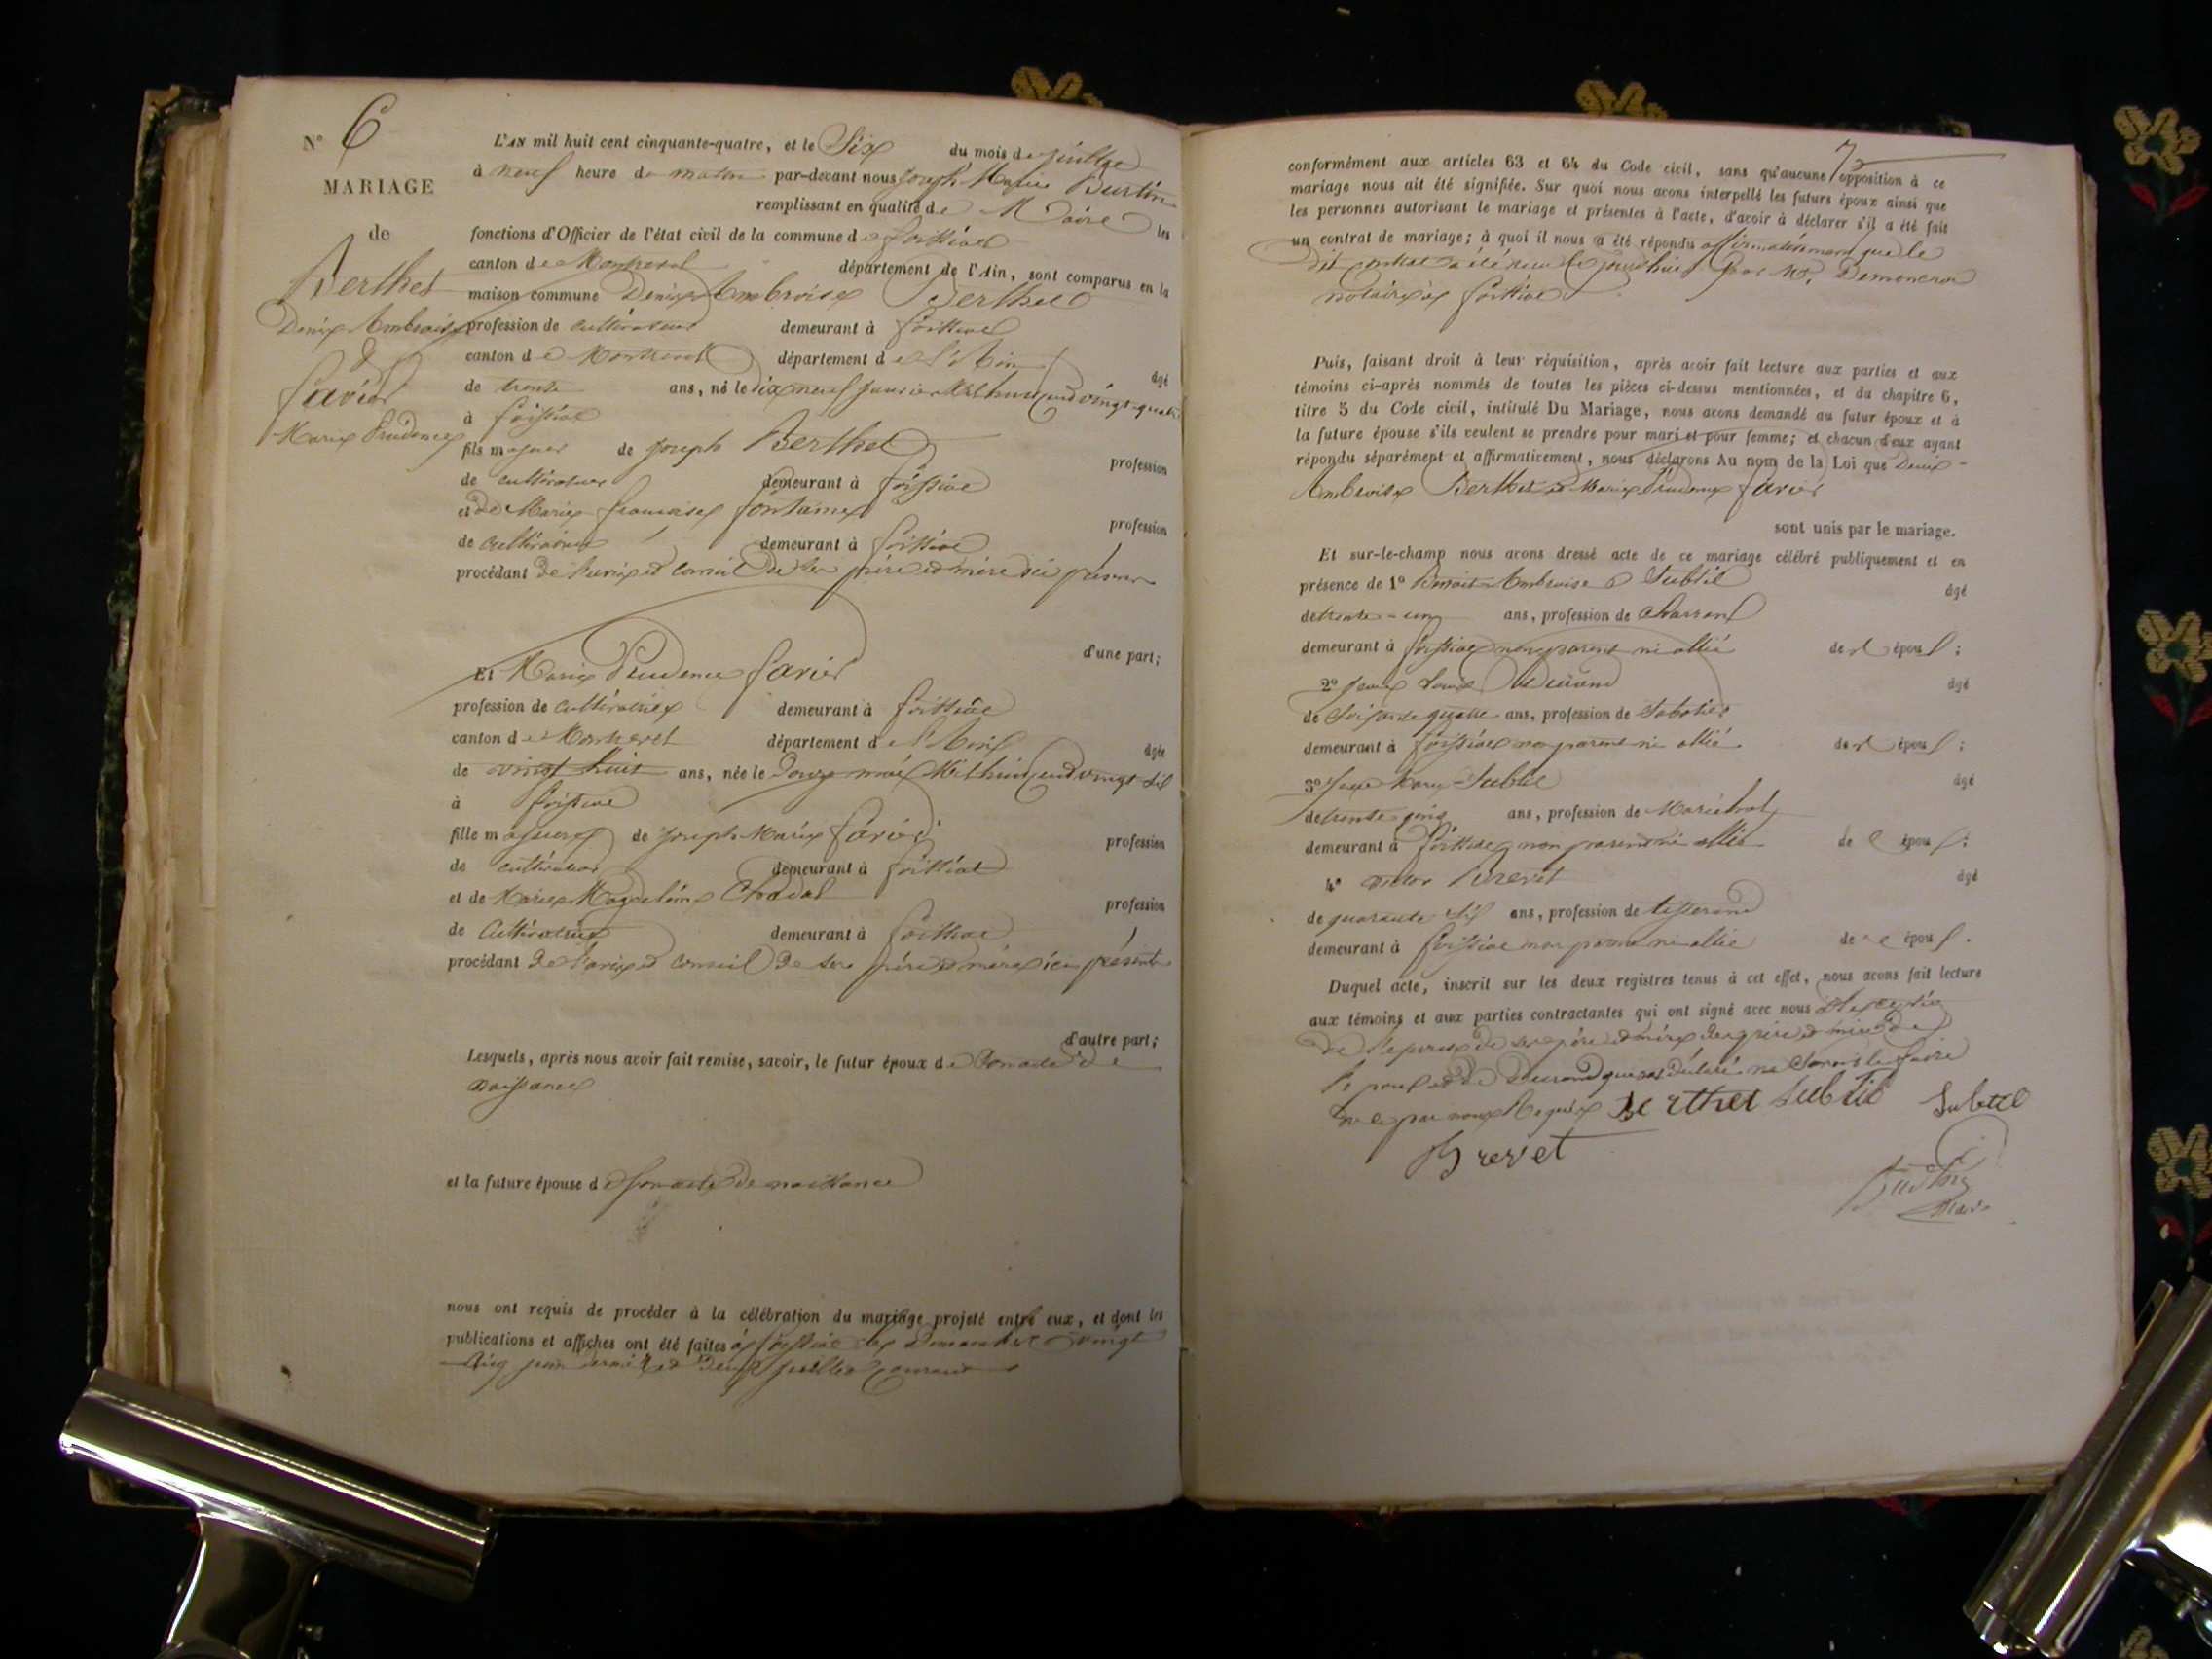 N° 6
MARIAGE
de
Berthet
Denis Ambroise
&
favier
Marie Prudence
L'AN mil huit cent cinquante-quatre, et le Six du mois de juillet
à neuf heure du matin par-devant nous Joseph Marie
remplissant en qualité de Maire les
fonctions d'Officier de l'état civil de la commune de foissiat
canton de Montrevel département de l'Ain, sont comparus en la
maison commune Denis Ambroise Berthet
profession de cultivateur demeurant à foissiat
canton de Montrevel département de l'Ain âgé
de trente ans, né le dix neuf janvier Mil huit cent vingt quatre
à foissiat
fils majeur de joseph Berthet profession
de cultivateur demeurant à foissiat
et de Marie francoise fontaine profession
de cultivatrice demeurant à foissiat
procédant de l'avis et conseil de ses père et mère ici présents
d'une part;
Et Marie Prudence favier
profession de cultivatrice demeurant à foissiat
canton de Montrevel département de l'Ain âgée
de vingt huit ans, née le Douze mai Mil huit cent vingt six
à foissiat
fille majeure de joseph Marie favier profession
de cultivateur demeurant à foissiat
et de Marie Magdeleine Chadal profession
de Cultivatrice demeurant à foissiat
procédant de l'avis et conseil de ses père et mère ici présents
d'autre part;
Lesquels, après nous avoir fait remise, savoir, le futur époux de son acte de
naissance
et la future épouse de son acte de naissance
nous ont requis de procéder à la célébration du mariage projeté entre eux, et dont les
publications et affiches ont été faites à foissiat les Dimanches vingt
cinq juin dernier et deux juillet courant
7
conformément aux articles 63 et 64 du Code civil, sans qu'aucune opposition à ce
mariage nous ait été signifiée. Sur quoi nous avons interpellé les futurs époux ainsi que
les personnes autorisant le mariage et présentes à l'acte, d'avoir à déclarer s'il a été fait
un contrat de mariage; à quoi il nous a été répondu affirmativement que le
dit contrat a été reçu par Me
notaire à foissiat
Puis, faisant droit à leur réquisition, après avoir fait lecture aux parties et aux
témoins ci-après nommés de toutes les pièces ci-dessus mentionnées, et du chapitre 6,
titre 5 du Code civil, intitulé Du Mariage, nous avons demandé au futur époux et à
la future épouse s'ils veulent se prendre pour mari et pour femme; et chacun d'eux ayant
répondu séparément et affirmativement, nous déclarons Au nom de la Loi que Denis-
Ambroise Berthet et Marie Prudence favier
sont unis par le mariage.
Et sur-le-champ nous avons dressé acte de ce mariage célébré publiquement et en
présence de 1° Benoit Ambroise Subtil âgé
de trente-un ans, profession de Charron
demeurant à foissiat non parent ni allié des époux;
2° Jean Louis Durand âgé
de soixante quatre ans, profession de Sabotier
demeurant à foissiat non parent ni allié des époux;
3° Subtil âgé
de trente cinq ans, profession de Maréchal
demeurant à foissiat non parent ni allié de époux;
4° victor Brevet âgé
de quarante six ans, profession de tisserand
demeurant à foissiat non parent ni allié de époux.
Duquel acte, inscrit sur les deux registres tenus à cet effet, nous avons fait lecture
aux témoins et aux parties contractantes qui ont signé avec nous
de l'épouse de ses père et mère des père et mère de
l'époux et de Durand qui ont déclaré ne savoir le faire
de ce par nous Requis Berthet Subtil Subtil
Brevet
Maire